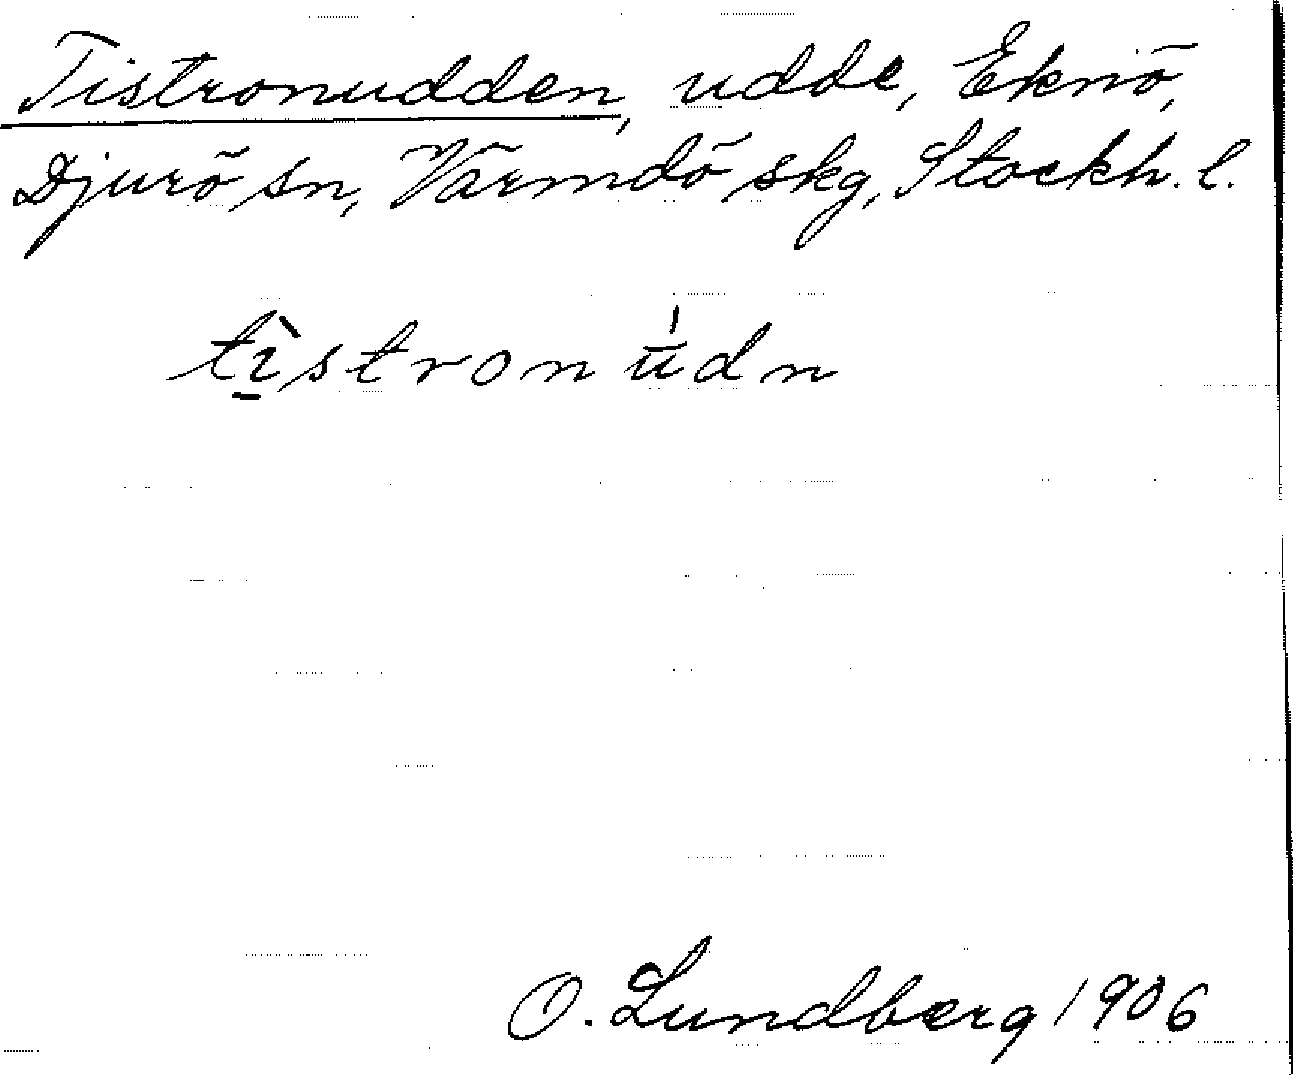 Tistronudden, udde, Eknö,
Djurö sn, Värmdö skg, Stockh. l.
tìstronúdn
O. Lundberg 1906